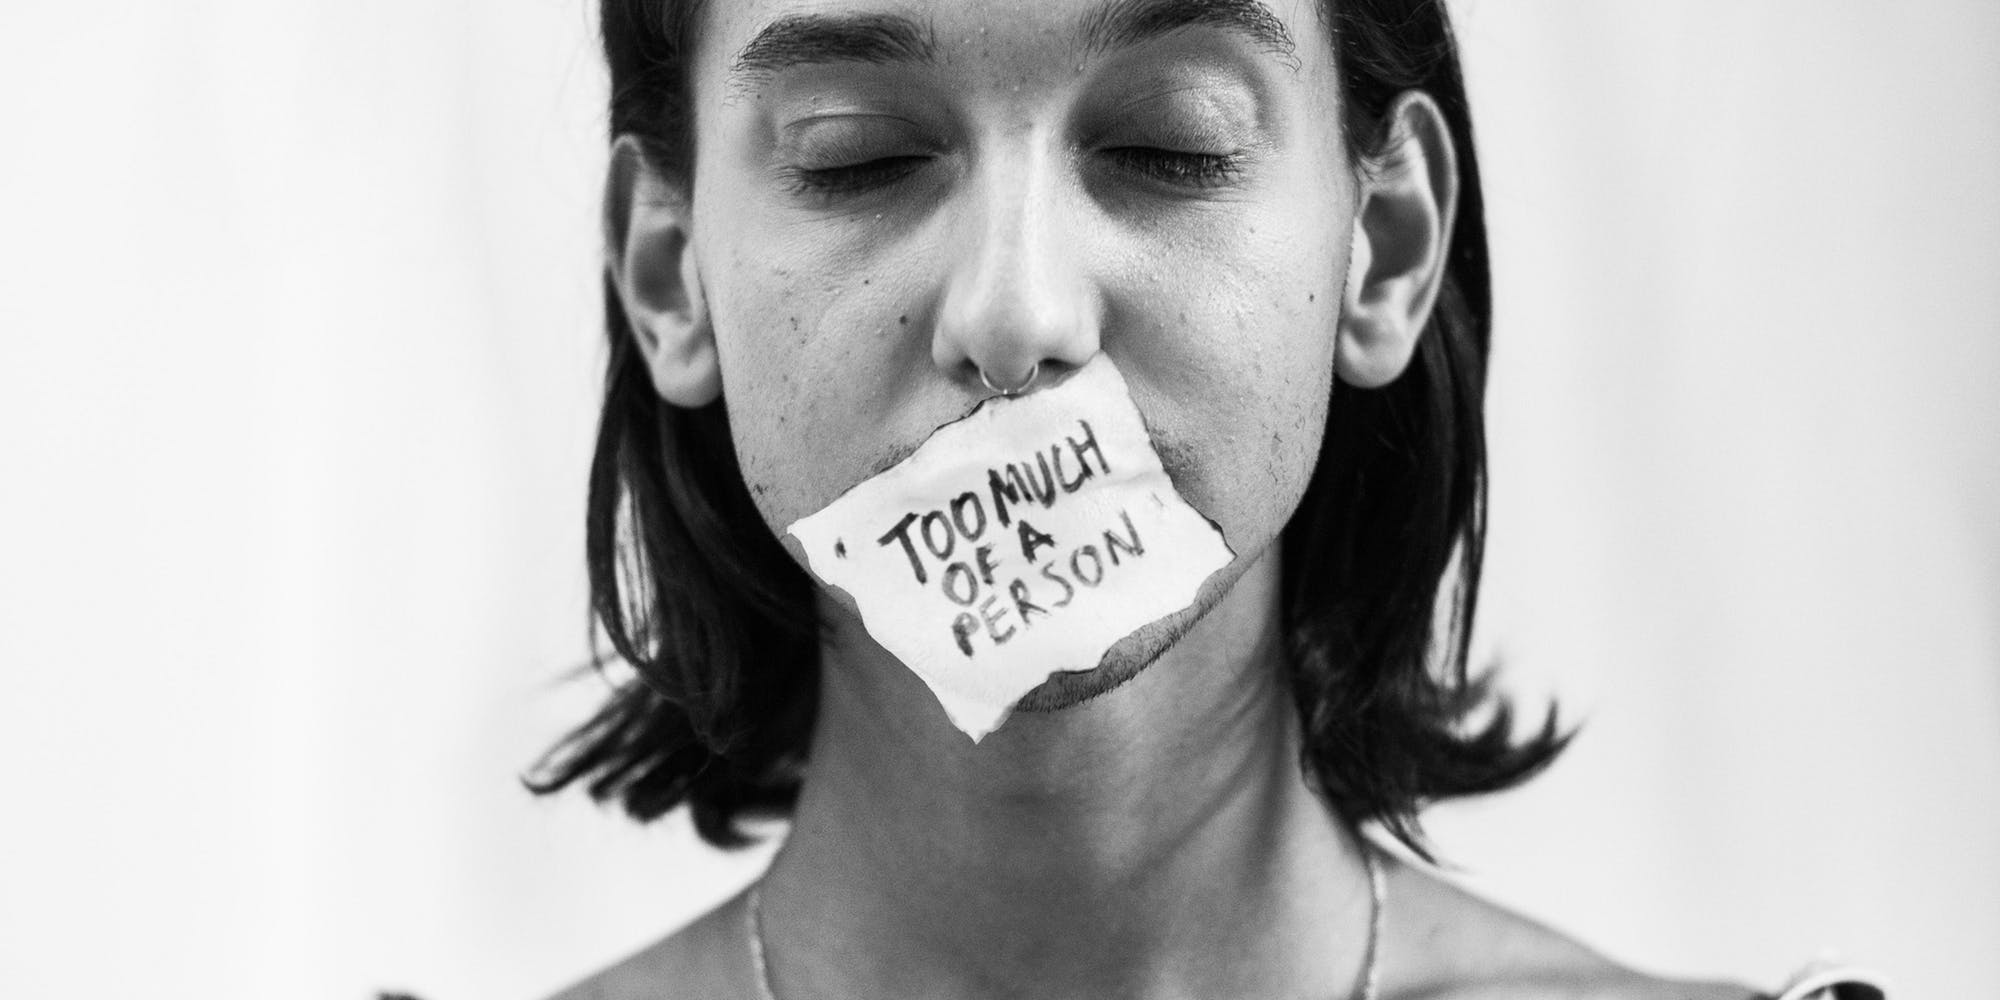 TOO MUCH
OF A
PERSON